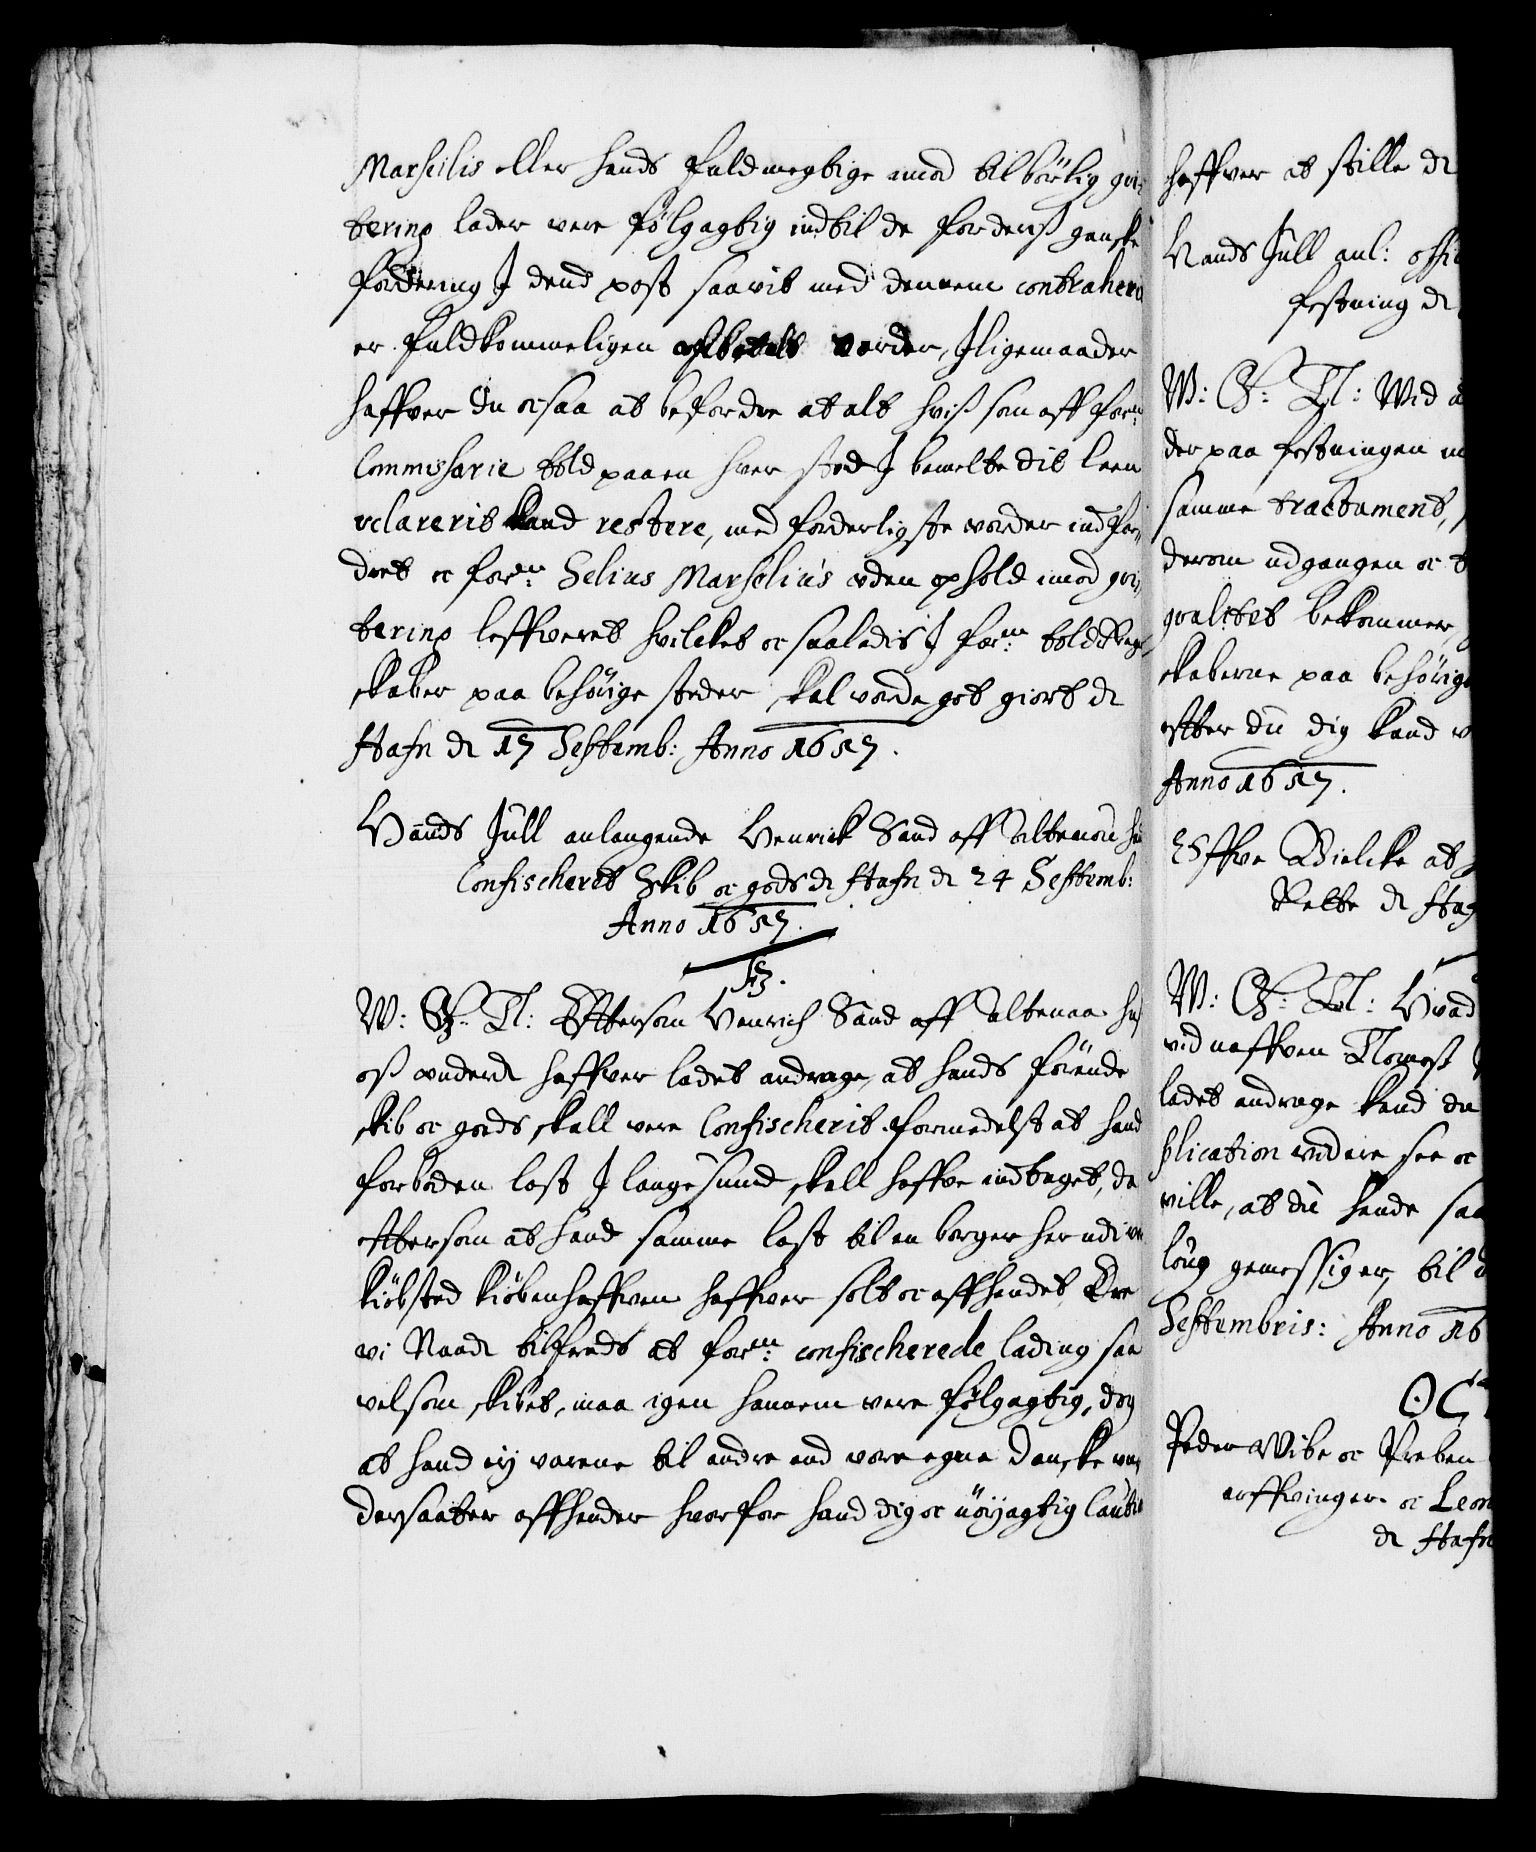 Marselis eller hands fuldmegtige imod tilbörlig qvi-
tering lader vere fölgagtig indtil de forderis ganske
fordering J dend post saavit med dennem contrahert
er fuldkommeligen afbetalt vorder, Jligemaader
haffver du ocsaa at befordre at alt hviss som aff forne
Commissarie told paa en hver sted J bemelte dit leen
uclarerit kand restere, med forderligste vorder indfor-
dret oc forne Selius Marselius uden ophold imod qvi-
tering leffveret hvilcket oc saaledis J forne told regn-
skaber paa behörige steder skal vorde got giort etc
Hafn den 17 Septemb: Anno 1657.
Vands Jull anlangende Henrich Sand aff Altenou hans
Confischeret Skib oc gods etc Hafn den 24 Septemb:
Anno 1657.
F3.
W: G: T: Efftersom Henrich Sand aff Altenaa hos
oss underd haffver ladet andrage, at hands förende
skib oc goeds skall vere Confischerit formedelst at hand
forboden last J langesund skall haffve indtaget, da
effter som at hand samme last til en borger her udi vor
kiöbsted kiöbenhaffven haffver solt oc affhendet Ere
vi Naadt tilfreds at forne confischerede lading saa
velsom skibet, maa igen hannem vere fölgagtig, dog
at hand ey varene til andre end vore egne danske un-
dersaatter affhender hvorfor hand dig oc nöyagtig Caution
haffver at stille etc
Vands Jull anl: offi
festning etc
W: G: T: Wid a
der paa festningen m
samme tractament,
derom udgangen oc t
qvalitet bekommer,
skaberne paa behörige
effter du dig kand v
Anno 1657.
Effve Bielcke at
Rette etc Haf
W: G: T: Hvad
vid naffven Tomoss
ladet andrage kand du
plication videre see oc
ville, at du hende saa
loug gemessiger, til d
Septembris: Anno 16
OC
Peder Wibe oc Preben
arffvinger oc Leon
etc Hafn